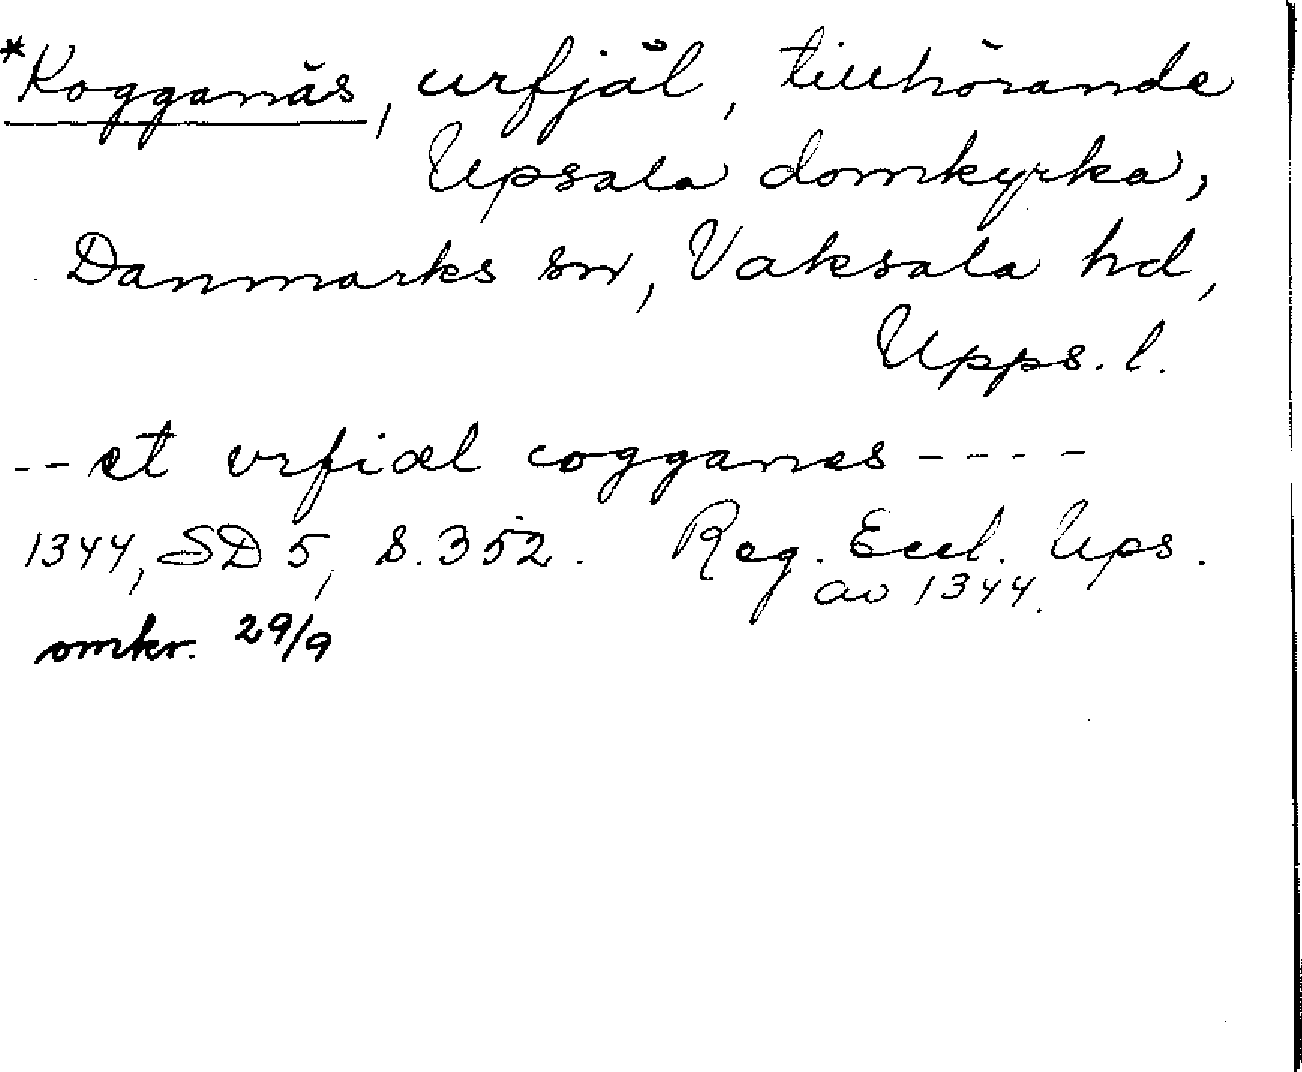 *Kogganäs, urfjäl, tillhörande
Upsala domkyrka,
Danmarks sn, Vaksala hd,
Upps. l.
-- et vrfiæl cogganes ----
1344, SD 5, s. 352. Reg. Eccl. Ups.
av 1344.
omkr. 29/9